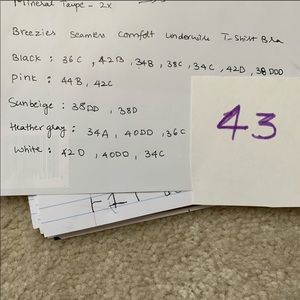 Mineral Taupe - 2x
Breezies Seamless Comfort Underwire T-Shirt Bra
Black : 36C, 42B, 34B, 38C, 34C, 42D, 38DDD
Pink : 44B, 42C
Sunbeige : 38DD, 38D
Heather gray : 34A, 40DD, 36C
White : 42D, 40DD, 34C
43